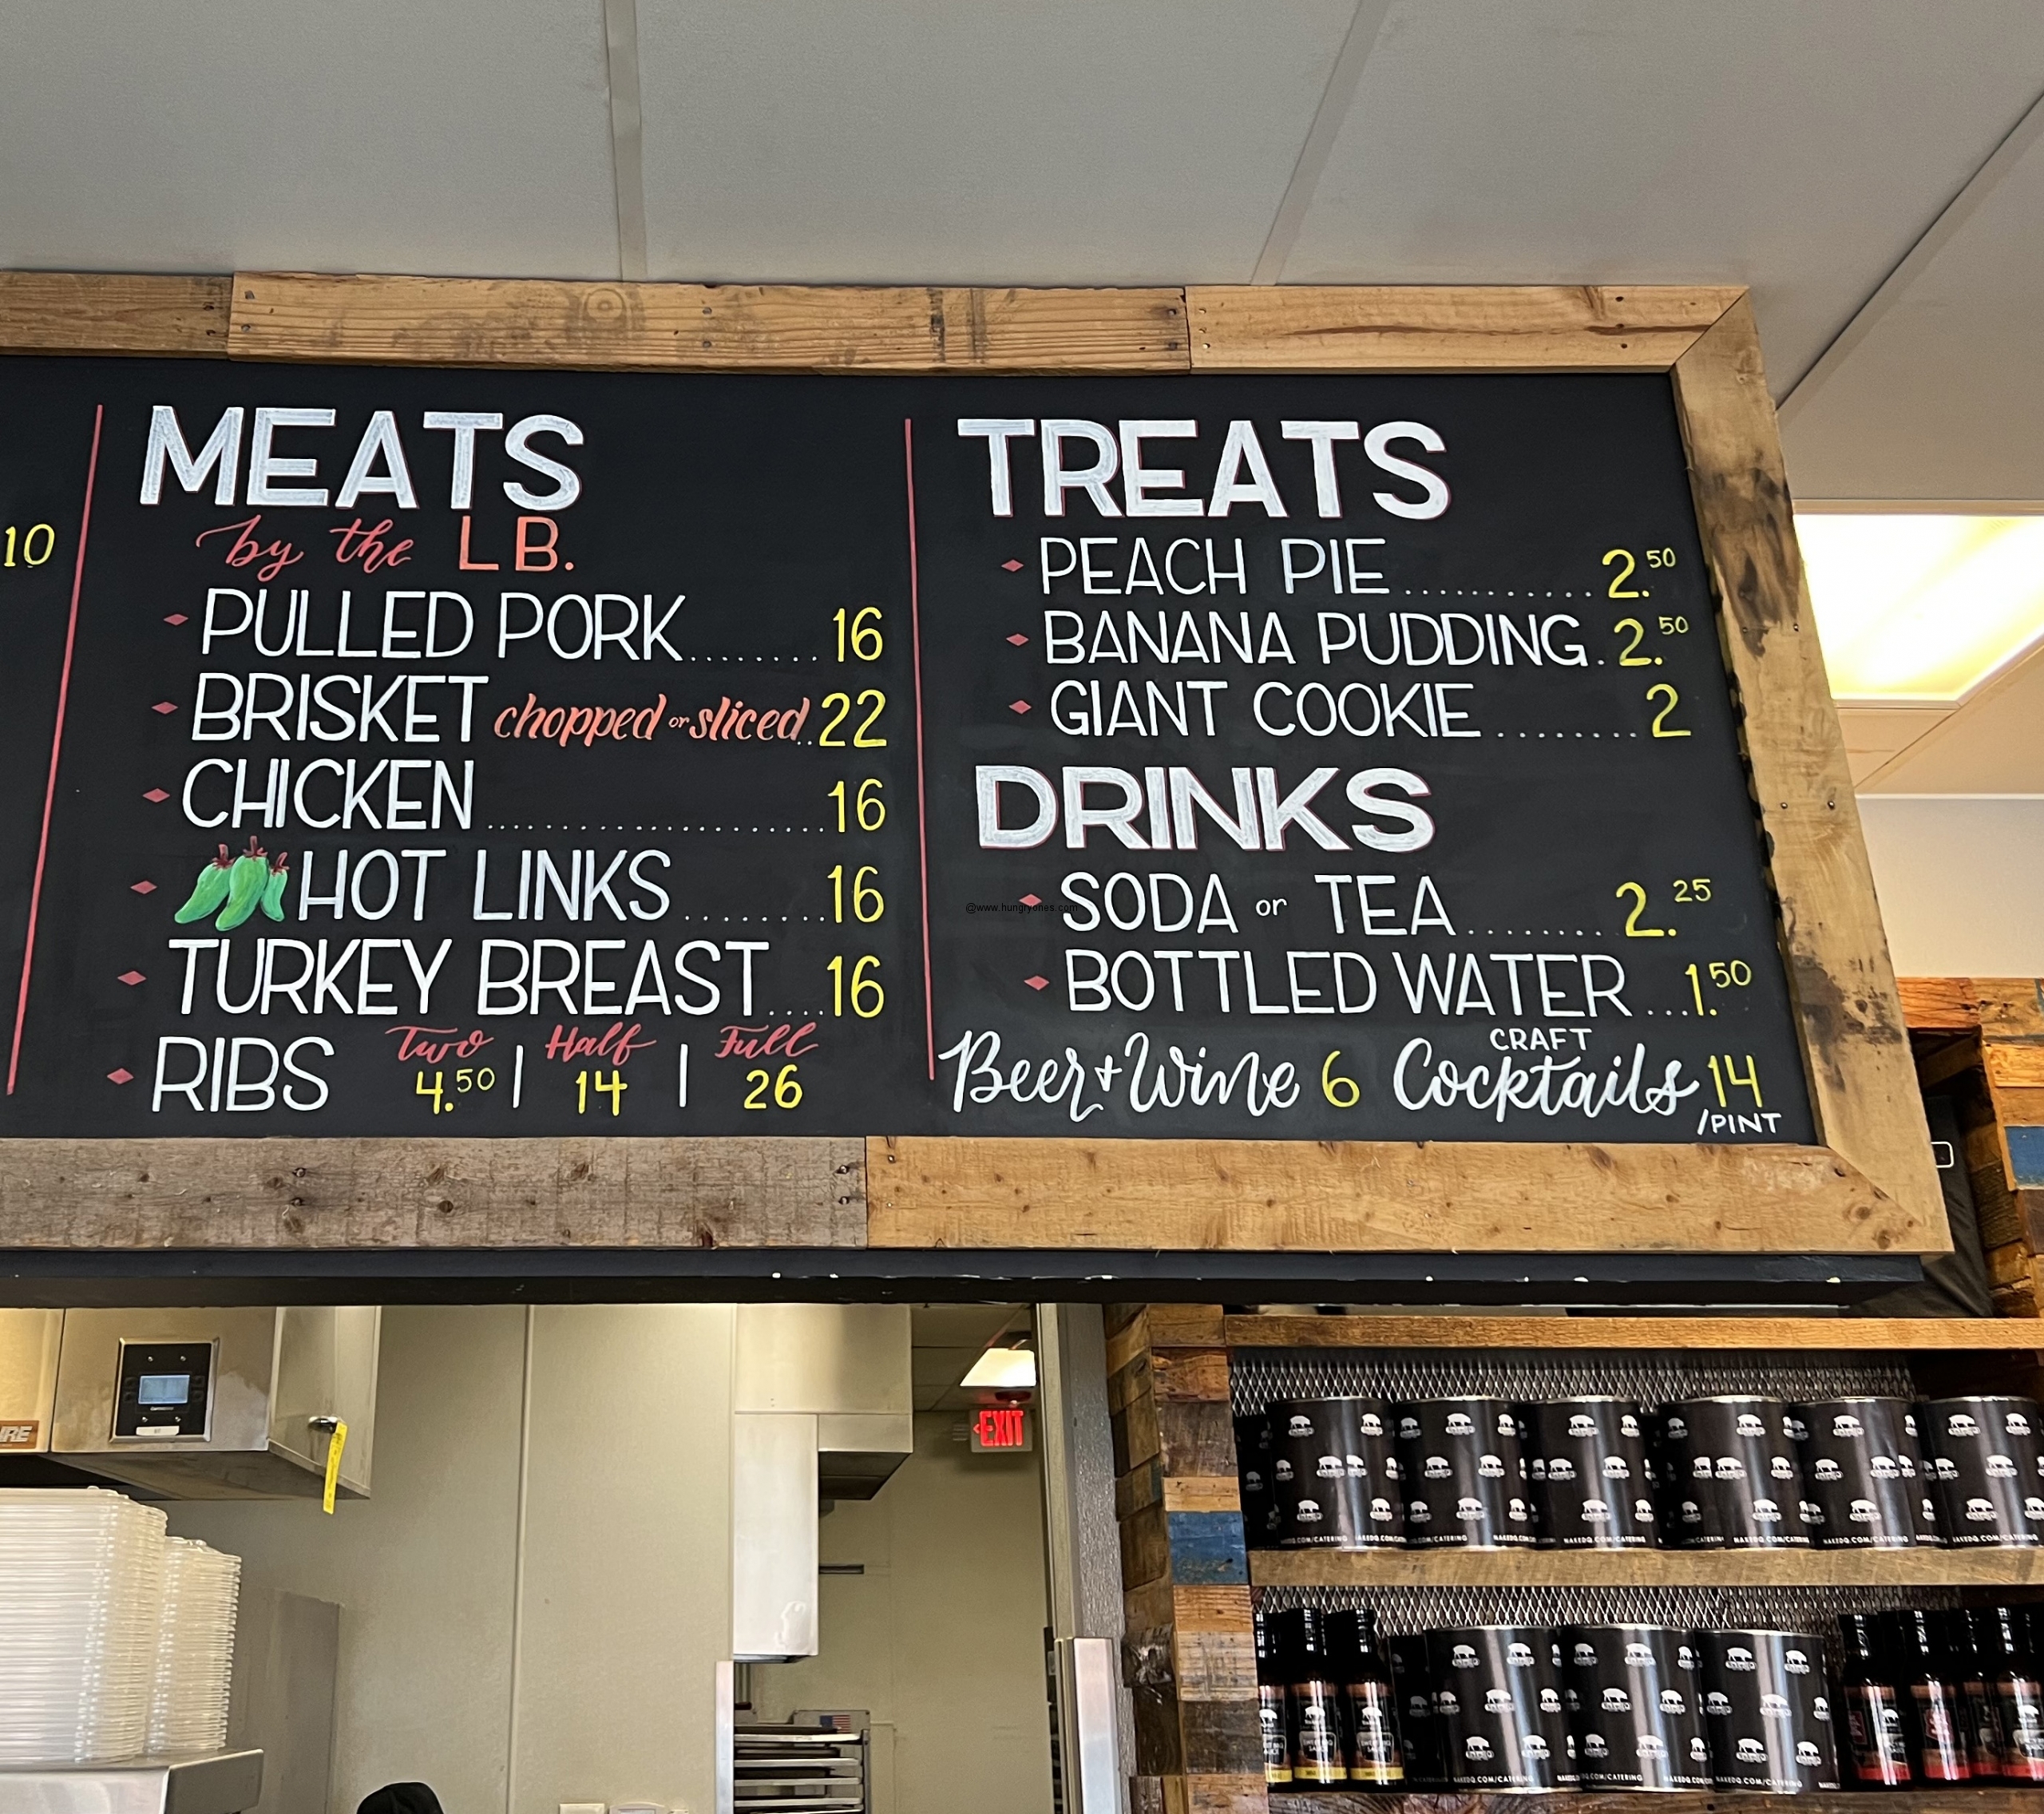 10
MEATS
by the LB.
PULLED PORK........16
BRISKET chopped or sliced..22
CHICKEN....................16
HOT LINKS........16
TURKEY BREAST....16
RIBS Two 4.50 | Half 14 | Full 26
TREATS
PEACH PIE...........2.50
BANANA PUDDING.2.50
GIANT COOKIE........2
DRINKS
SODA or TEA........2.25
BOTTLED WATER...1.50
Beer + Wine 6 CRAFT Cocktails 14 /PINT
@www.hungryones.com
EXIT
NAKEDQ.COM/CATERING
NAKEDQ.COM/CATERING
NAKEDQ.COM/CATERING
NAKEDQ.COM/CATERING
NAKEDQ.COM/CATERING